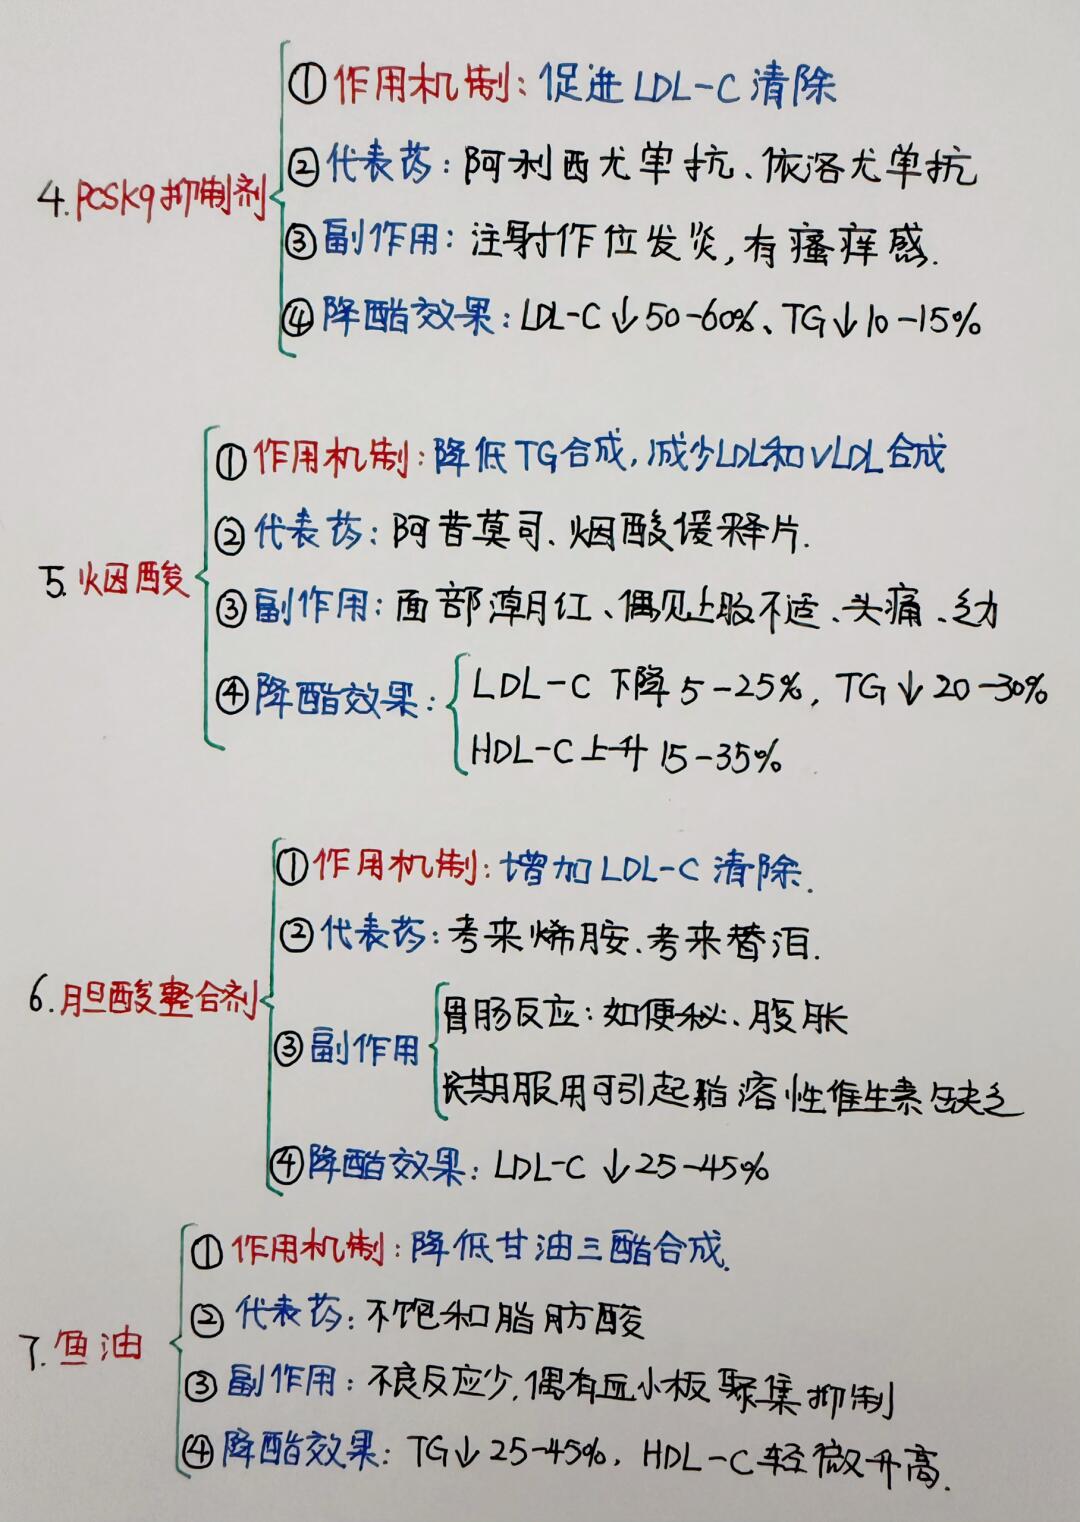 4. PCSK9抑制剂
①作用机制：促进LDL-C清除
②代表药：阿利西尤单抗、依洛尤单抗
③副作用：注射作位发炎,有瘙痒感.
④降酯效果：LDL-C↓50-60%、TG↓10-15%
5. 烟酸
①作用机制：降低TG合成,减少LDL和VLDL合成
②代表药：阿昔莫司、烟酸缓释片.
③副作用：面部潮红、偶见上腹不适、头痛、乏力
④降酯效果：
LDL-C下降5-25%, TG↓20-30%
HDL-C上升15-35%
6. 胆酸整合剂
①作用机制：增加LDL-C清除.
②代表药：考来烯胺、考来替泊.
③副作用
胃肠反应：如便秘、腹胀
长期服用可引起脂溶性维生素缺乏
④降酯效果：LDL-C↓25-45%
7. 鱼油
①作用机制：降低甘油三酯合成.
②代表药：不饱和脂肪酸
③副作用：不良反应少,偶有血小板聚集抑制
④降酯效果：TG↓25-45%, HDL-C轻微升高.